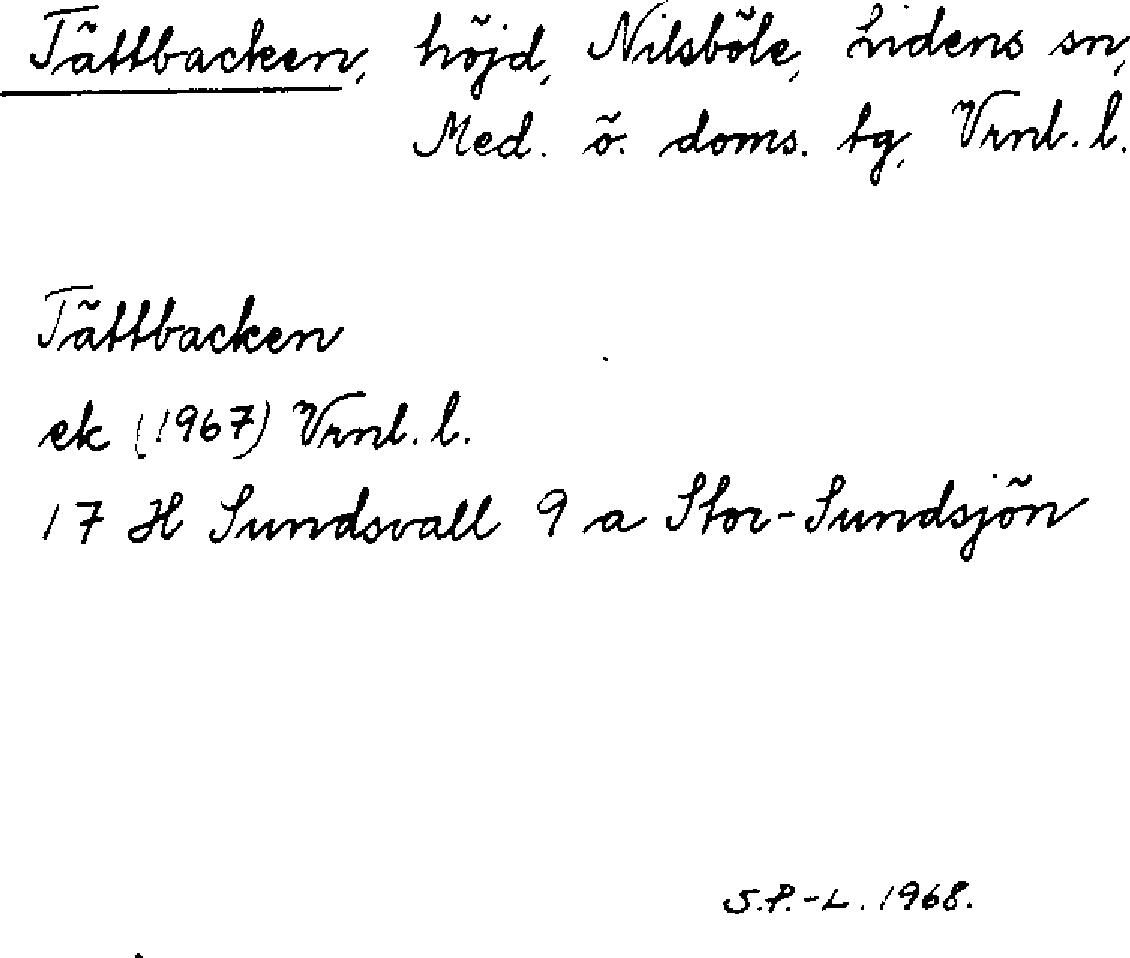 Tättbacken, höjd, Nilsböle, Lidens sn,
Med. ö. doms. tg, Vrnl. l.
Tättbacken
ek (1967) Vrnl. l.
17 H Sundsvall 9 a Stor-Sundsjön
S.P.-L. 1968.